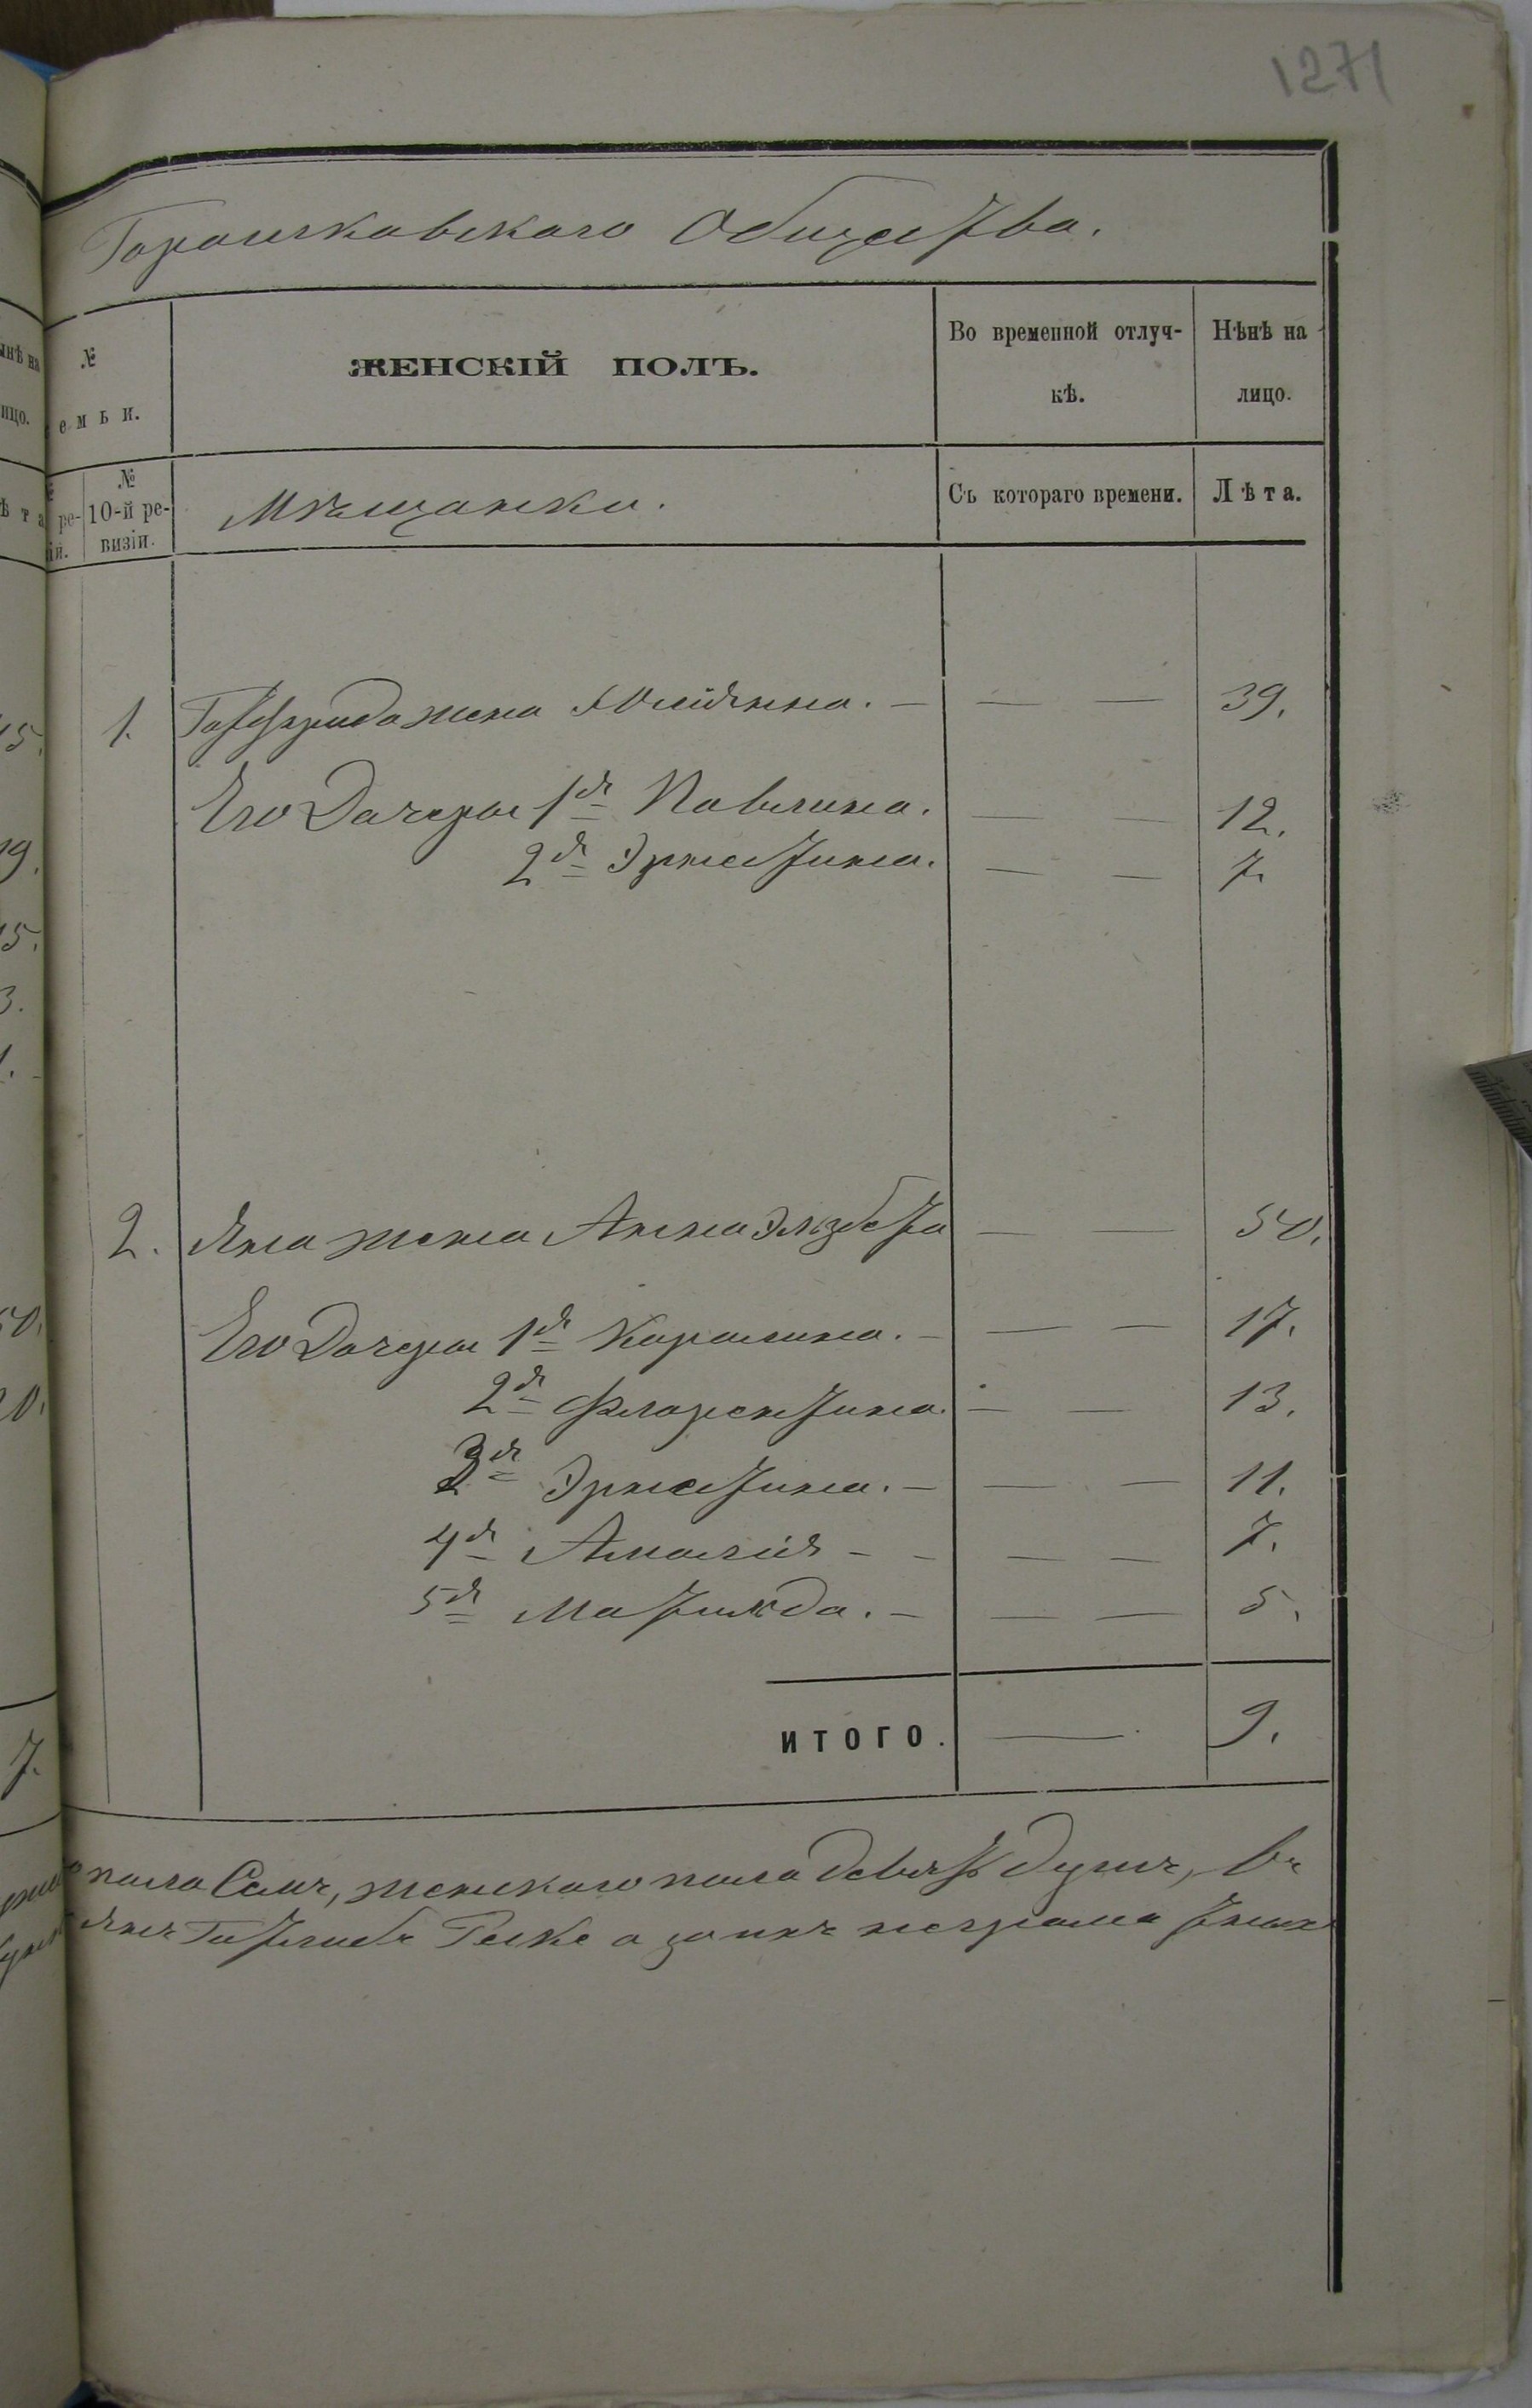 1271
Горошковскаго Общества.
№
емьи.
ЖЕНСКІЙ ПОЛЪ.
Во временной отлуч-
кѣ.
Нѣнѣ на
лицо.
ре-
ій.
№
10-й ре-
визіи.
Мѣщанки.
Съ котораго времени.
Лѣта.
1. Готфрида жена Юліянна. — — — 39.
Его Дочери 1я Павлина. — — 12.
2я Эрнестина. — — 7.
2. Яна жена Анна Эльзбета — — 50.
Его Дочери 1я Каролина. — — — 17.
2я Флорентина. — — 13.
3я Эрнестина. — — — 11.
4я Амалія - - — — 7.
5я Матильда. — — — 5.
ИТОГО. — 9.
пола Семь, женскаго пола девять душъ, въ
Янъ Готлибъ Геске а за них неграмотных